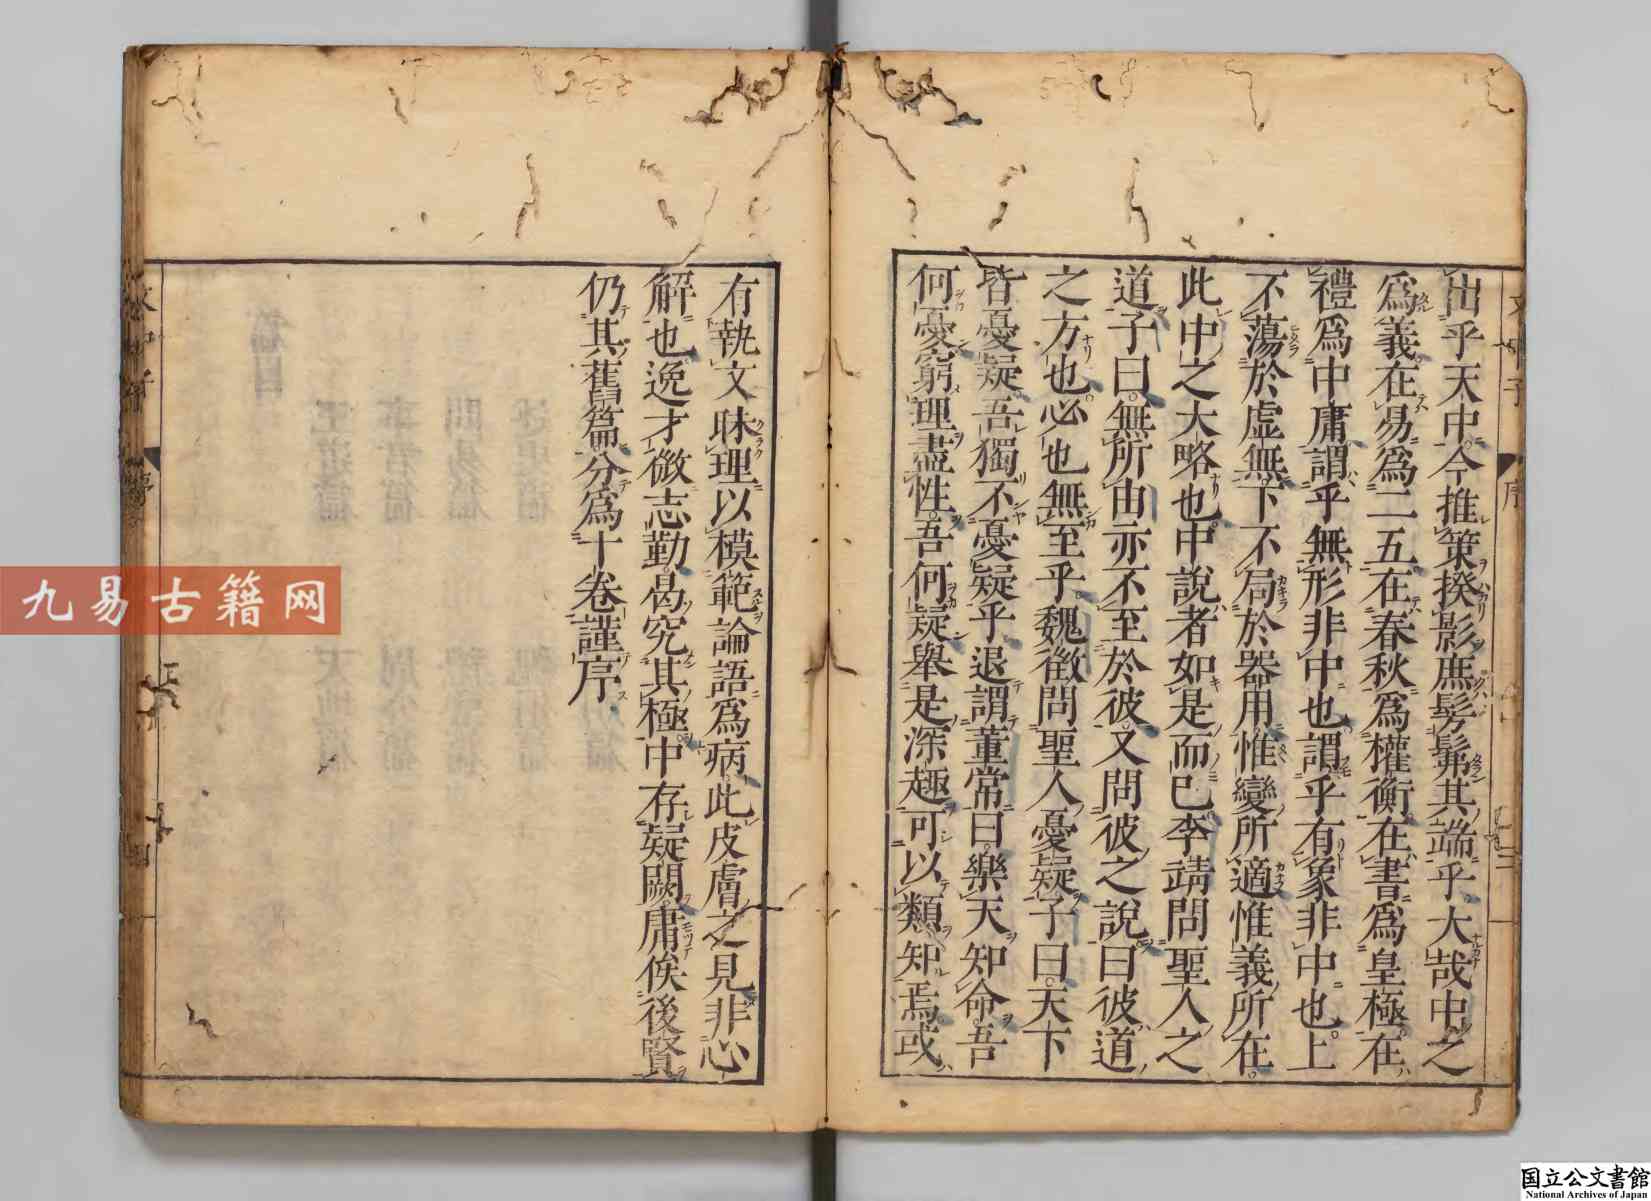 出乎天中今推策揆影庶髣髴其端乎大哉中之
爲義在易爲二五在春秋爲權衡在書爲皇極在
禮爲中庸謂乎無形非中也謂乎有象非中也上
不蕩於虛無下不局於器用惟變所適惟義所在
此中之大略也中說者如是而已李靖問聖人之
道子曰無所由亦不至於彼又問彼之說曰彼道
之方也必也無至乎魏徵問聖人憂疑子曰天下
皆憂疑吾獨不憂疑乎退謂董常曰樂天知命吾
何憂窮理盡性吾何疑舉是深趣可以類知焉或
有執文昧理以模範論語爲病此皮膚之見非心
解也逸才微志勤曷究其極中存疑闕庸俟後賢
仍其舊篇分爲十卷謹序
九易古籍网
国立公文書館
National Archives of Japan